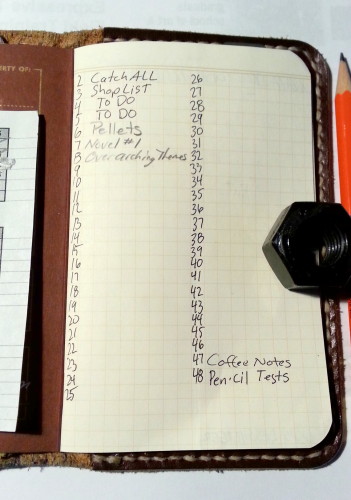 ERTY OF:
2 CatchALL
3 ShopList
4 To Do
5 To Do
6 Pellets
7 Novel #1
8 Overarching Themes
9
10
11
12
13
14
15
16
17
18
19
20
21
22
23
24
25
26
27
28
29
30
31
32
33
34
35
36
37
38
39
40
41
42
43
44
45
46
47 Coffee Notes
48 Pen·cil Tests